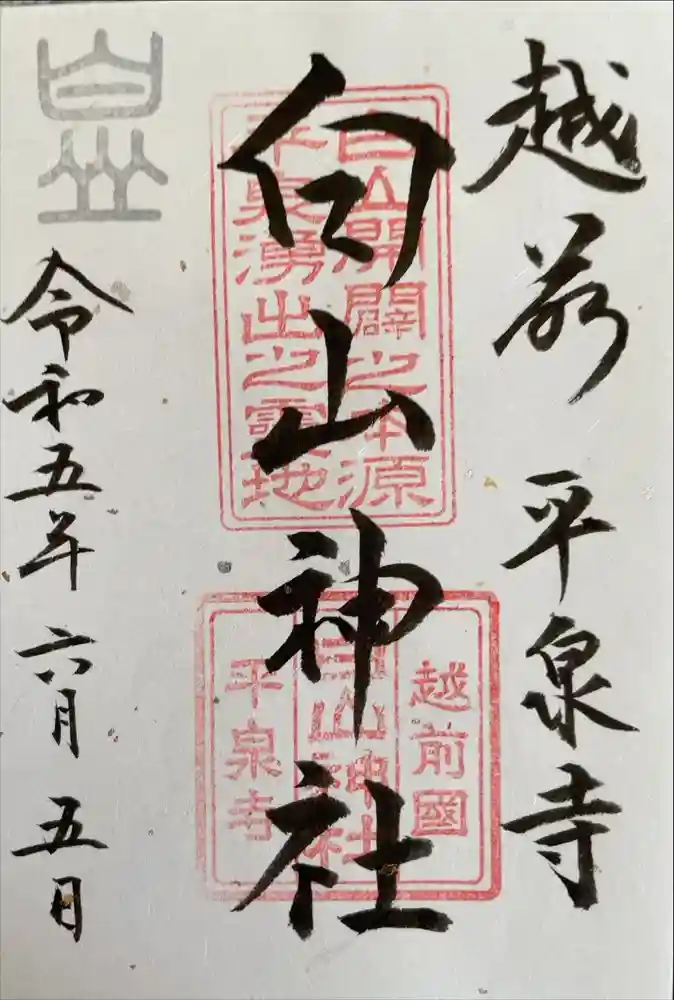 越前 平泉寺
白山神社
白山開闢之本源
平泉湧出之靈地
越前國
白山神社
平泉寺
令和五年 六月 五日